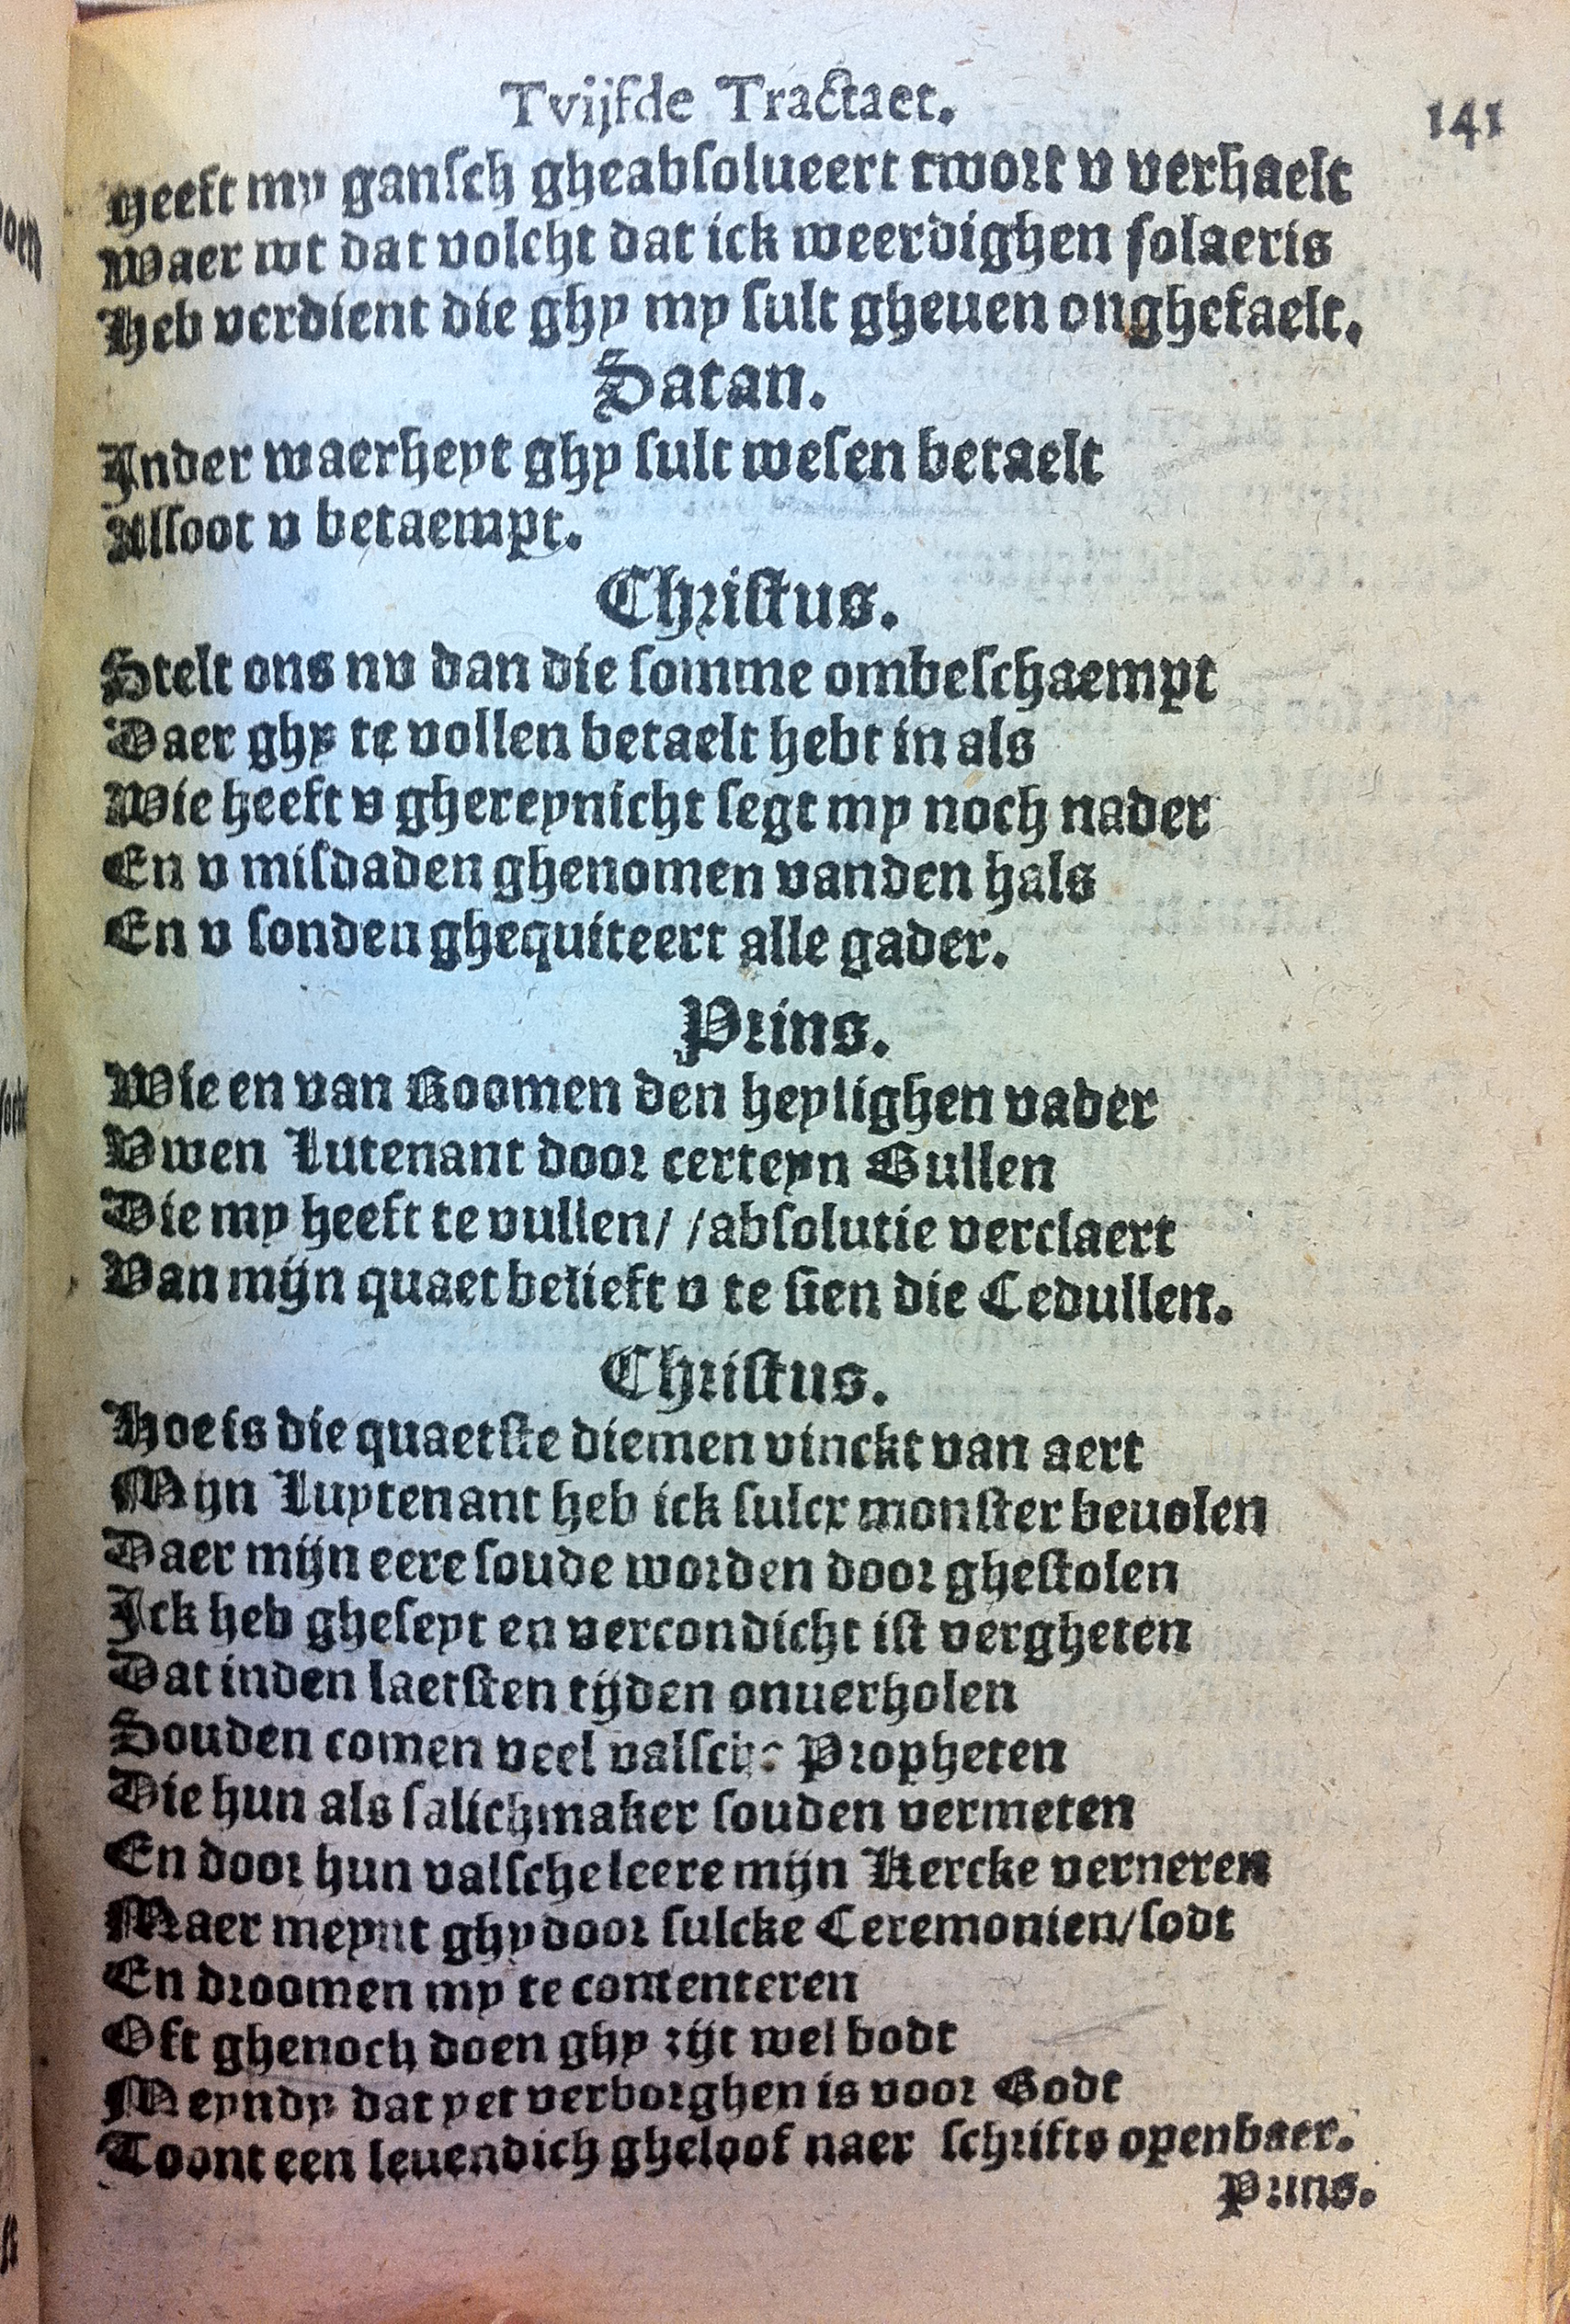 Tvijfde Tractaet.
141
Heeft my gansch gheabsolueert twort v verhaelt
Waer wt dat volcht dat ick weerdighen solaeris
Heb verdient die ghy my sult gheuen onghefaelt.
Satan.
Inder waerheyt ghy sult wesen betaelt
Alsoot v betaempt.
Christus.
Stelt ons nv dan die somme ombeschaempt
Daer ghy te vollen betaelt hebt in als
Wie heeft v ghereynicht segt my noch nader
En v misdaden ghenomen vanden hals
En v sonden ghequiteert alle gader.
Prins.
Wie en van Roomen den heylighen vader
Vwen Lutenant door certeyn Bullen
Die my heeft te vullen/ /absolutie verclaert
Van mijn quaet belieft v te sien die Cedullen.
Christus.
Hoe is die quaetste diemen vinckt van aert
Mijn Luytenant heb ick sulcx monster beuolen
Daer mijn eere soude worden door ghestolen
Ick heb gheseyt en vercondicht ist vergheten
Dat inden laetsten tijden onuerholen
Souden comen veel valsche Propheten
Die hun als salichmaker souden vermeten
En door hun valsche leere mijn Kercke verneren
Maer meynt ghy door sulcke Ceremonien/sodt
En droomen my te contenteren
Oft ghenoch doen ghy zijt wel bodt
Meyndy dat yet verborghen is voor Godt
Toont een leuendich gheloof naer schrifts openbaer.
Prins.